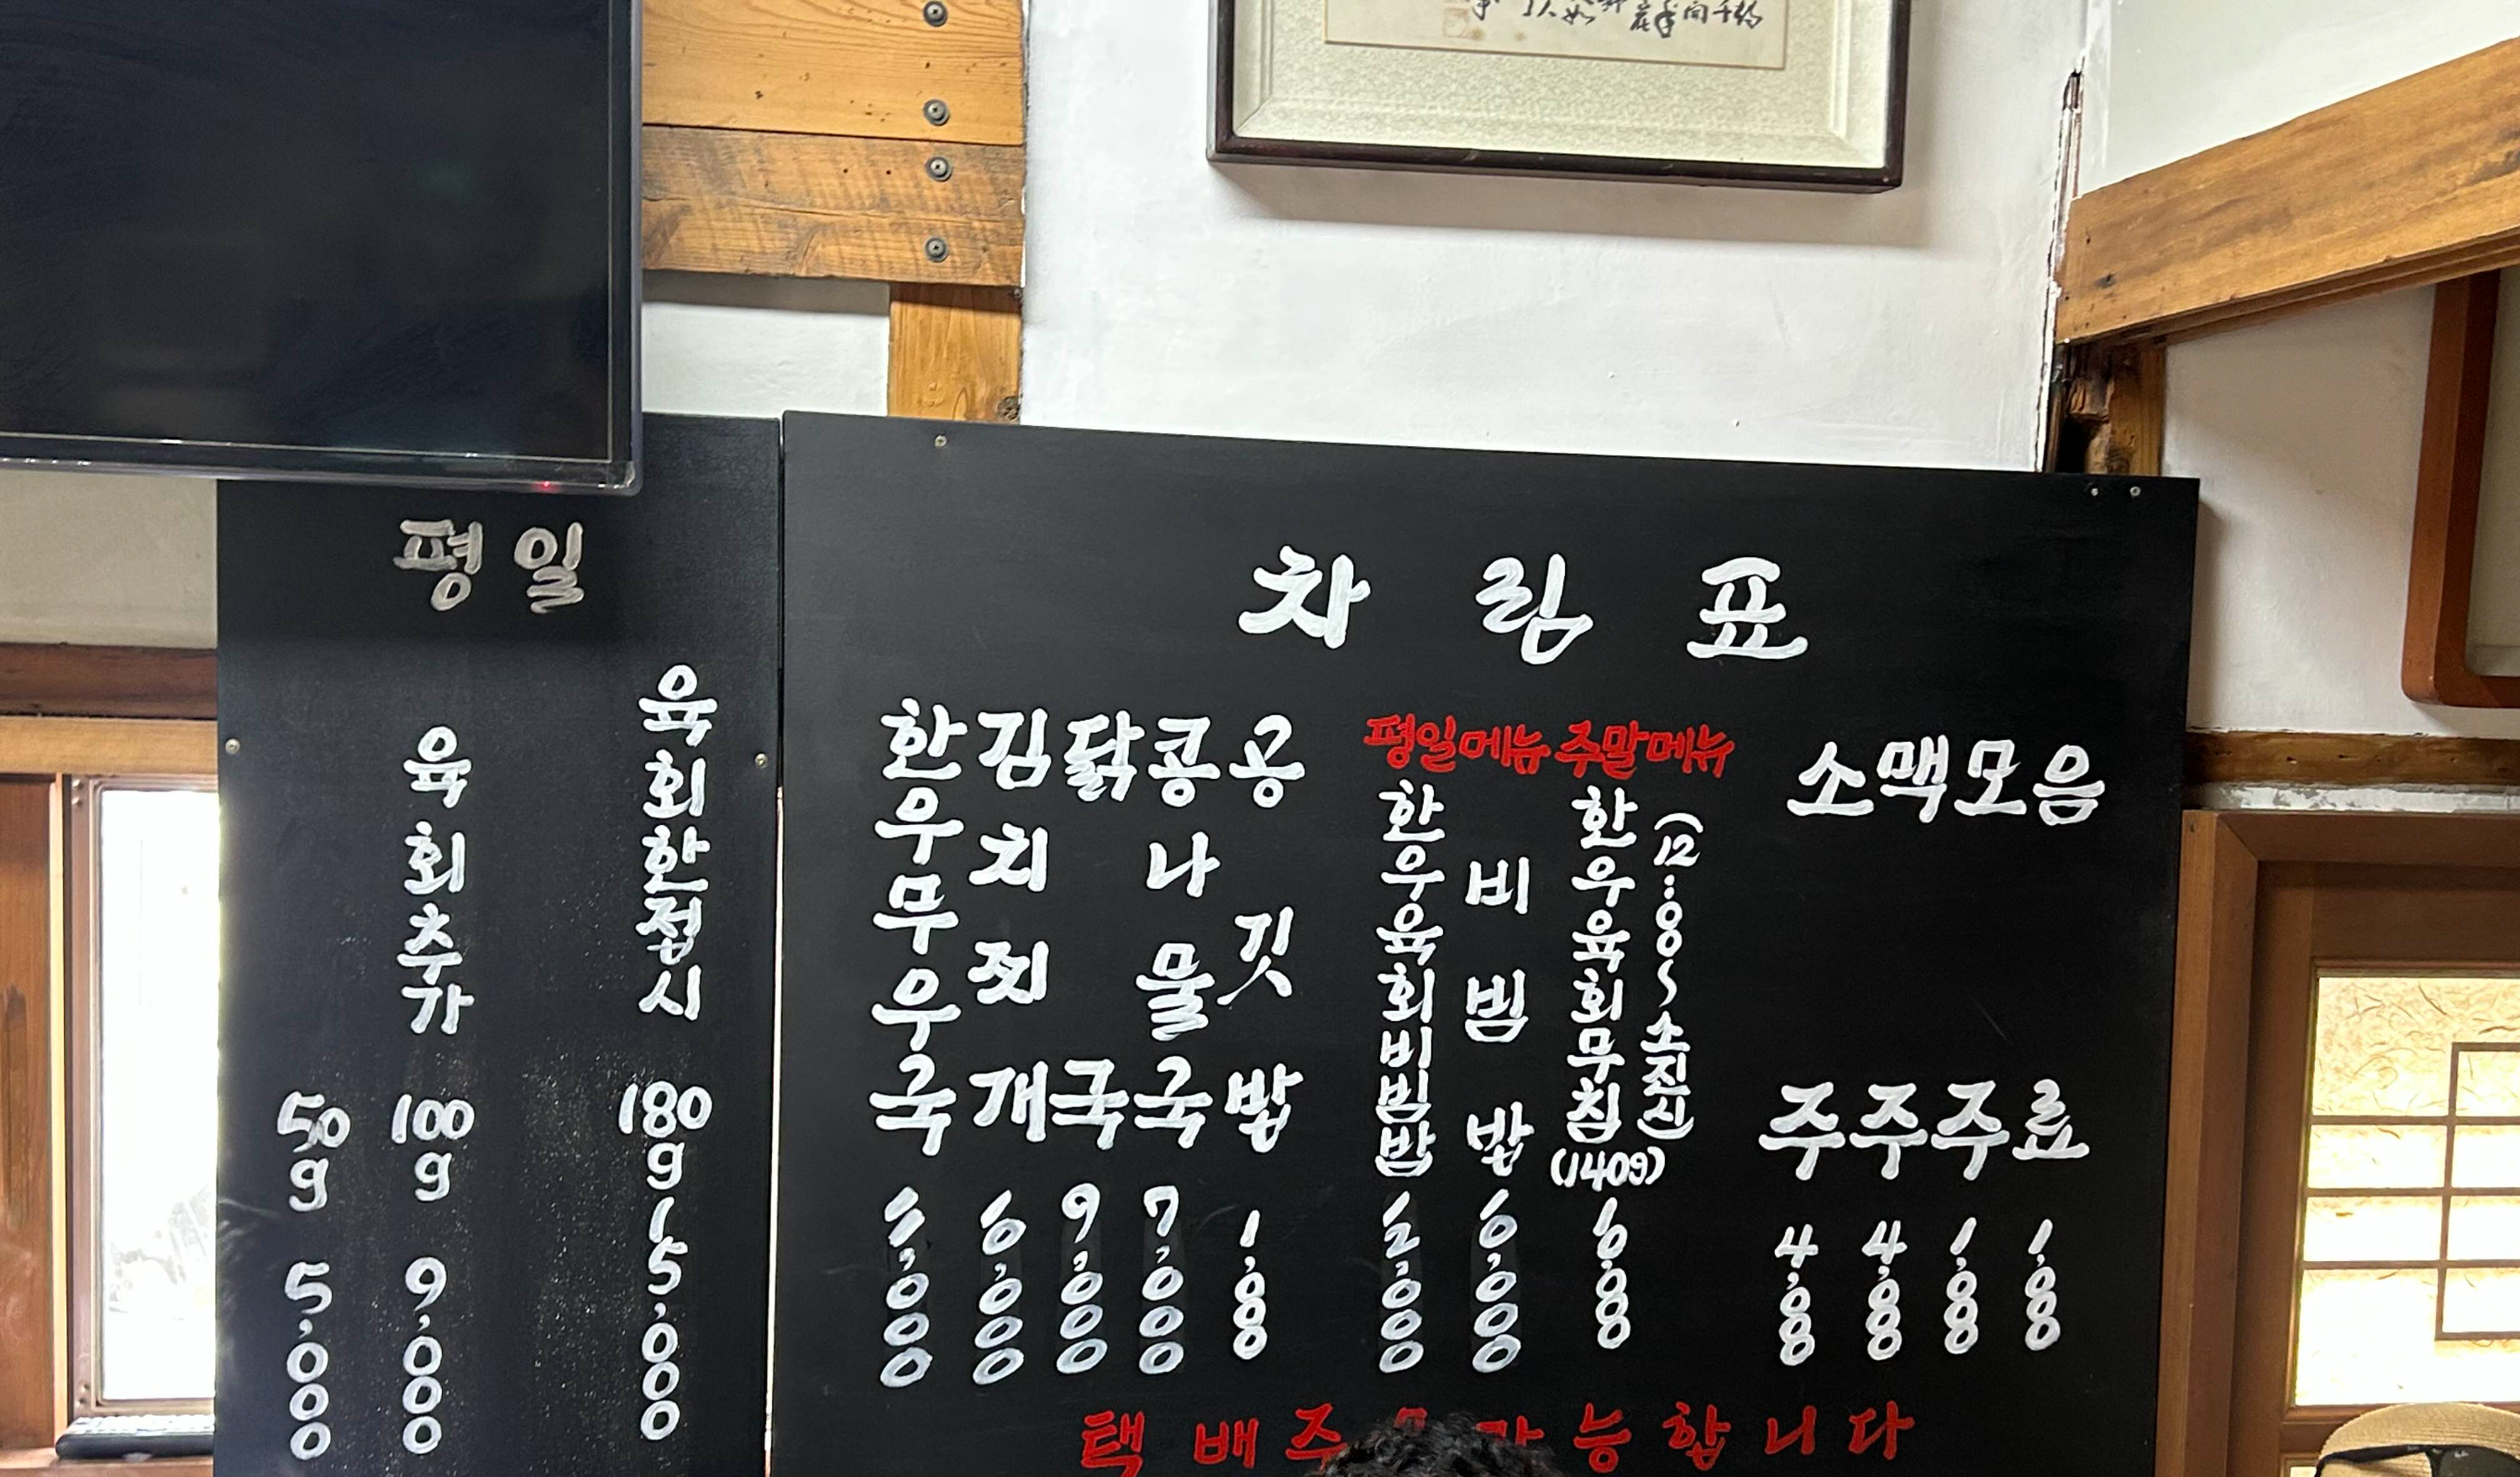 평일
육회한접시 180g 15,000
육회추가 100g 9,000
50g 5,000
차림표
한우무우국 ,000
김치찌개 6,000
닭국 9,000
콩나물국 7,000
공깃밥 1,000
평일메뉴
한우육회비빔밥 12,000
비빔밥 6,000
주말메뉴
한우육회무침(140g) 6,000
(12:00~소진시)
소주 4,000
맥주 4,000
모주 1,000
음료 1,000
택배주 가능합니다